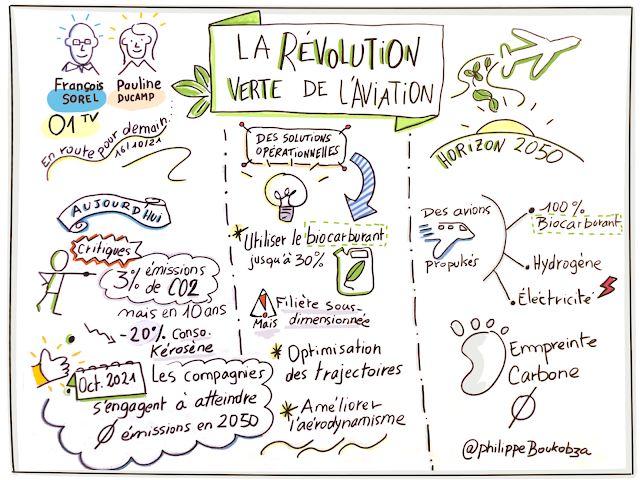 LA RÉVOLUTION
VERTE DE L'AVIATION
François
SOREL
Pauline
DUCAMP
01 TV
En route pour demain
16/10/21
AUJOURD'HUI
Critiques
3% émissions
de CO2
mais en 10 ans
-20% Conso.
Kérosène
Oct. 2021
Les compagnies
s'engagent à atteindre
Ø émissions en 2050
DES SOLUTIONS
OPÉRATIONNELLES
Utiliser le biocarburant
jusqu'à 30%
Mais
Filière sous-
dimensionnée
Optimisation
des trajectoires
Améliorer
l'aérodynamisme
HORIZON 2050
Des avions
propulsés
100%
Biocarburant
Hydrogène
Électricité
Empreinte
Carbone
Ø
@philippeBoukobza